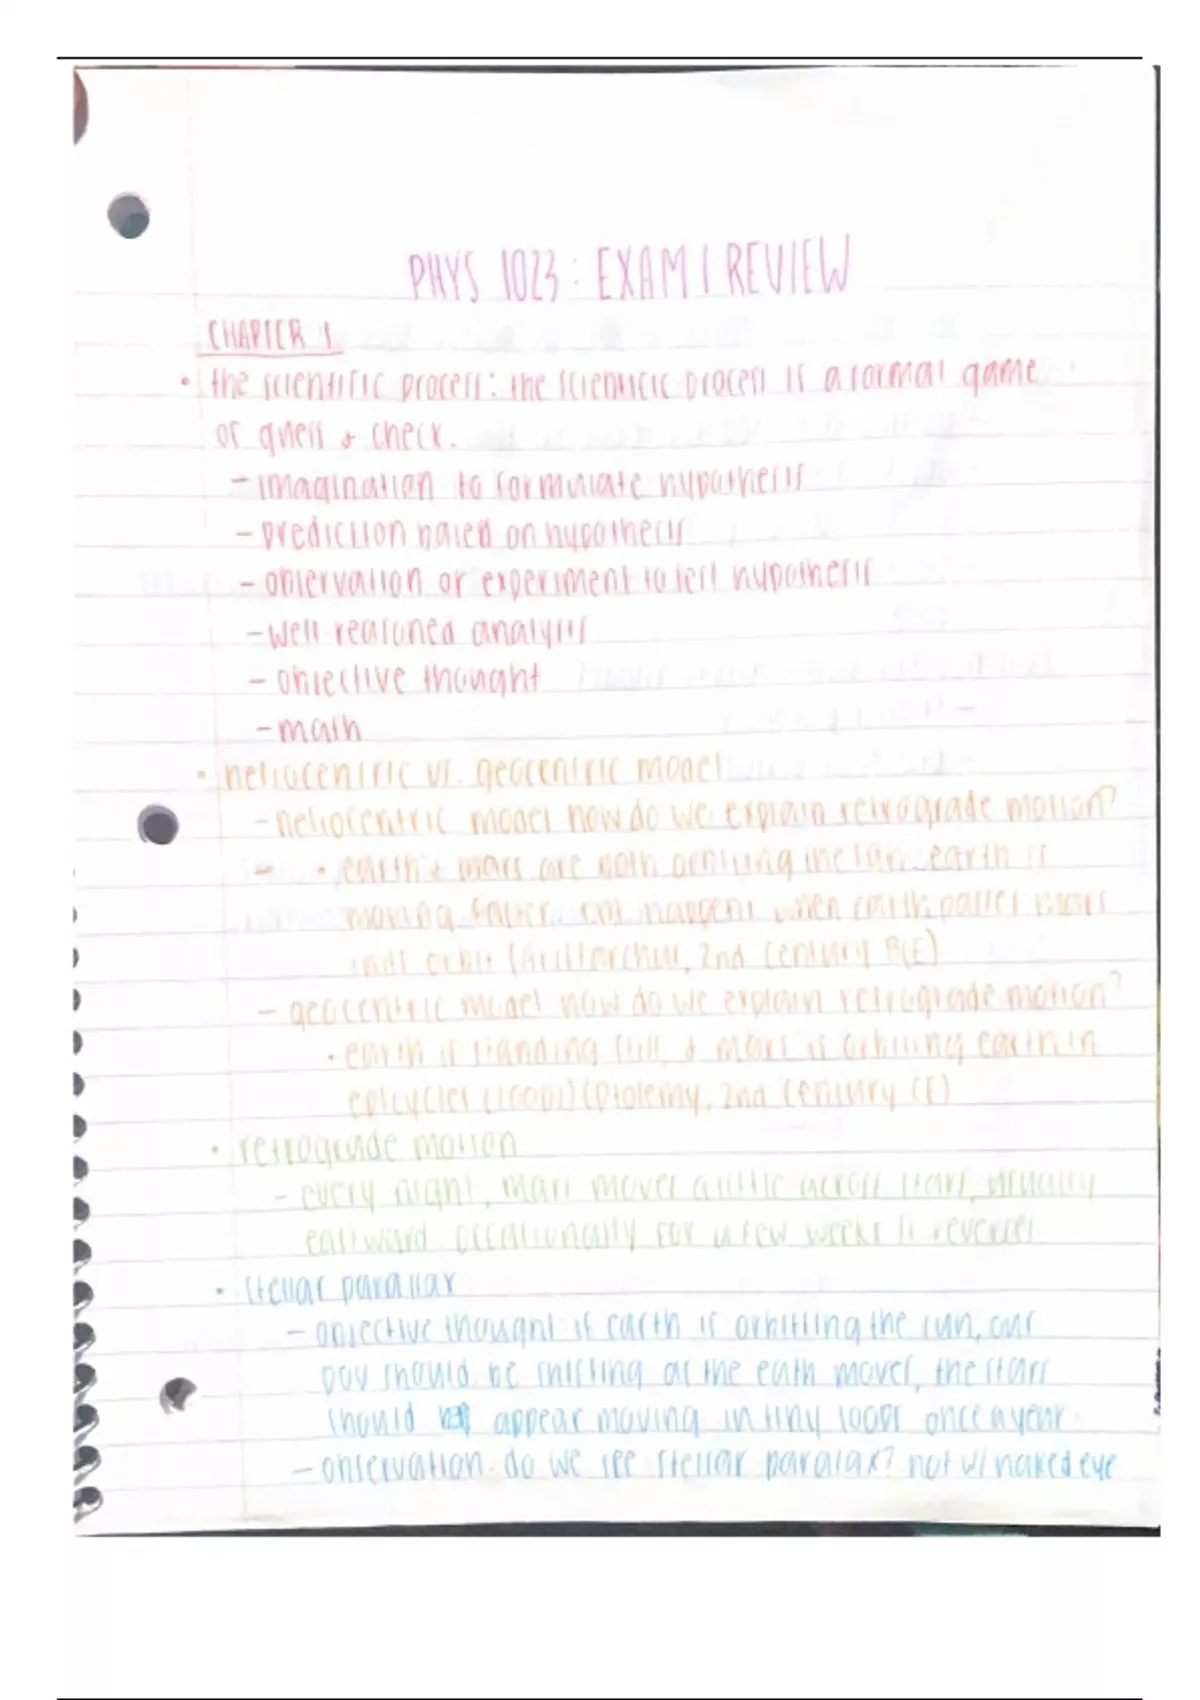 PHYS 1023: EXAM 1 REVIEW
CHAPTER 1
• the scientific process: the scientific process is a formal game
of guess & check.
- imagination to formulate hypothesis
- prediction based on hypothesis
- observation or experiment to test hypothesis
- well reasoned analysis
- objective thought
- math
• heliocentric vs. geocentric model
- heliocentric model how do we explain retrograde motion?
• earth & mars are both orbiting the sun. earth is
moving faster. happens when earth passes mars
orbit (Aristarchus, 2nd century BCE)
- geocentric model how do we explain retrograde motion?
• earth is standing still & mars is orbiting earth in
epicycles (loops) (Ptolemy, 2nd century CE)
• retrograde motion
- every night, mars moves a little across stars, usually
eastward. occasionally for a few weeks it reverses
• stellar parallax
- objective thought: if earth is orbitting the sun, our
pov should be shifting as the eath moves, the stars
should appear moving in tiny loops once a year.
- observation: do we see stellar paralax? not w/ naked eye